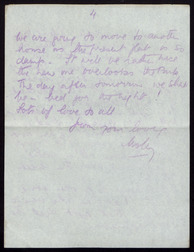 4
We are going to move to another
house as the present flat is so
damp. It will be rather nice
the new one overlooks
The day after tomorrow we shall
have had
Lots of love to all
from your loving